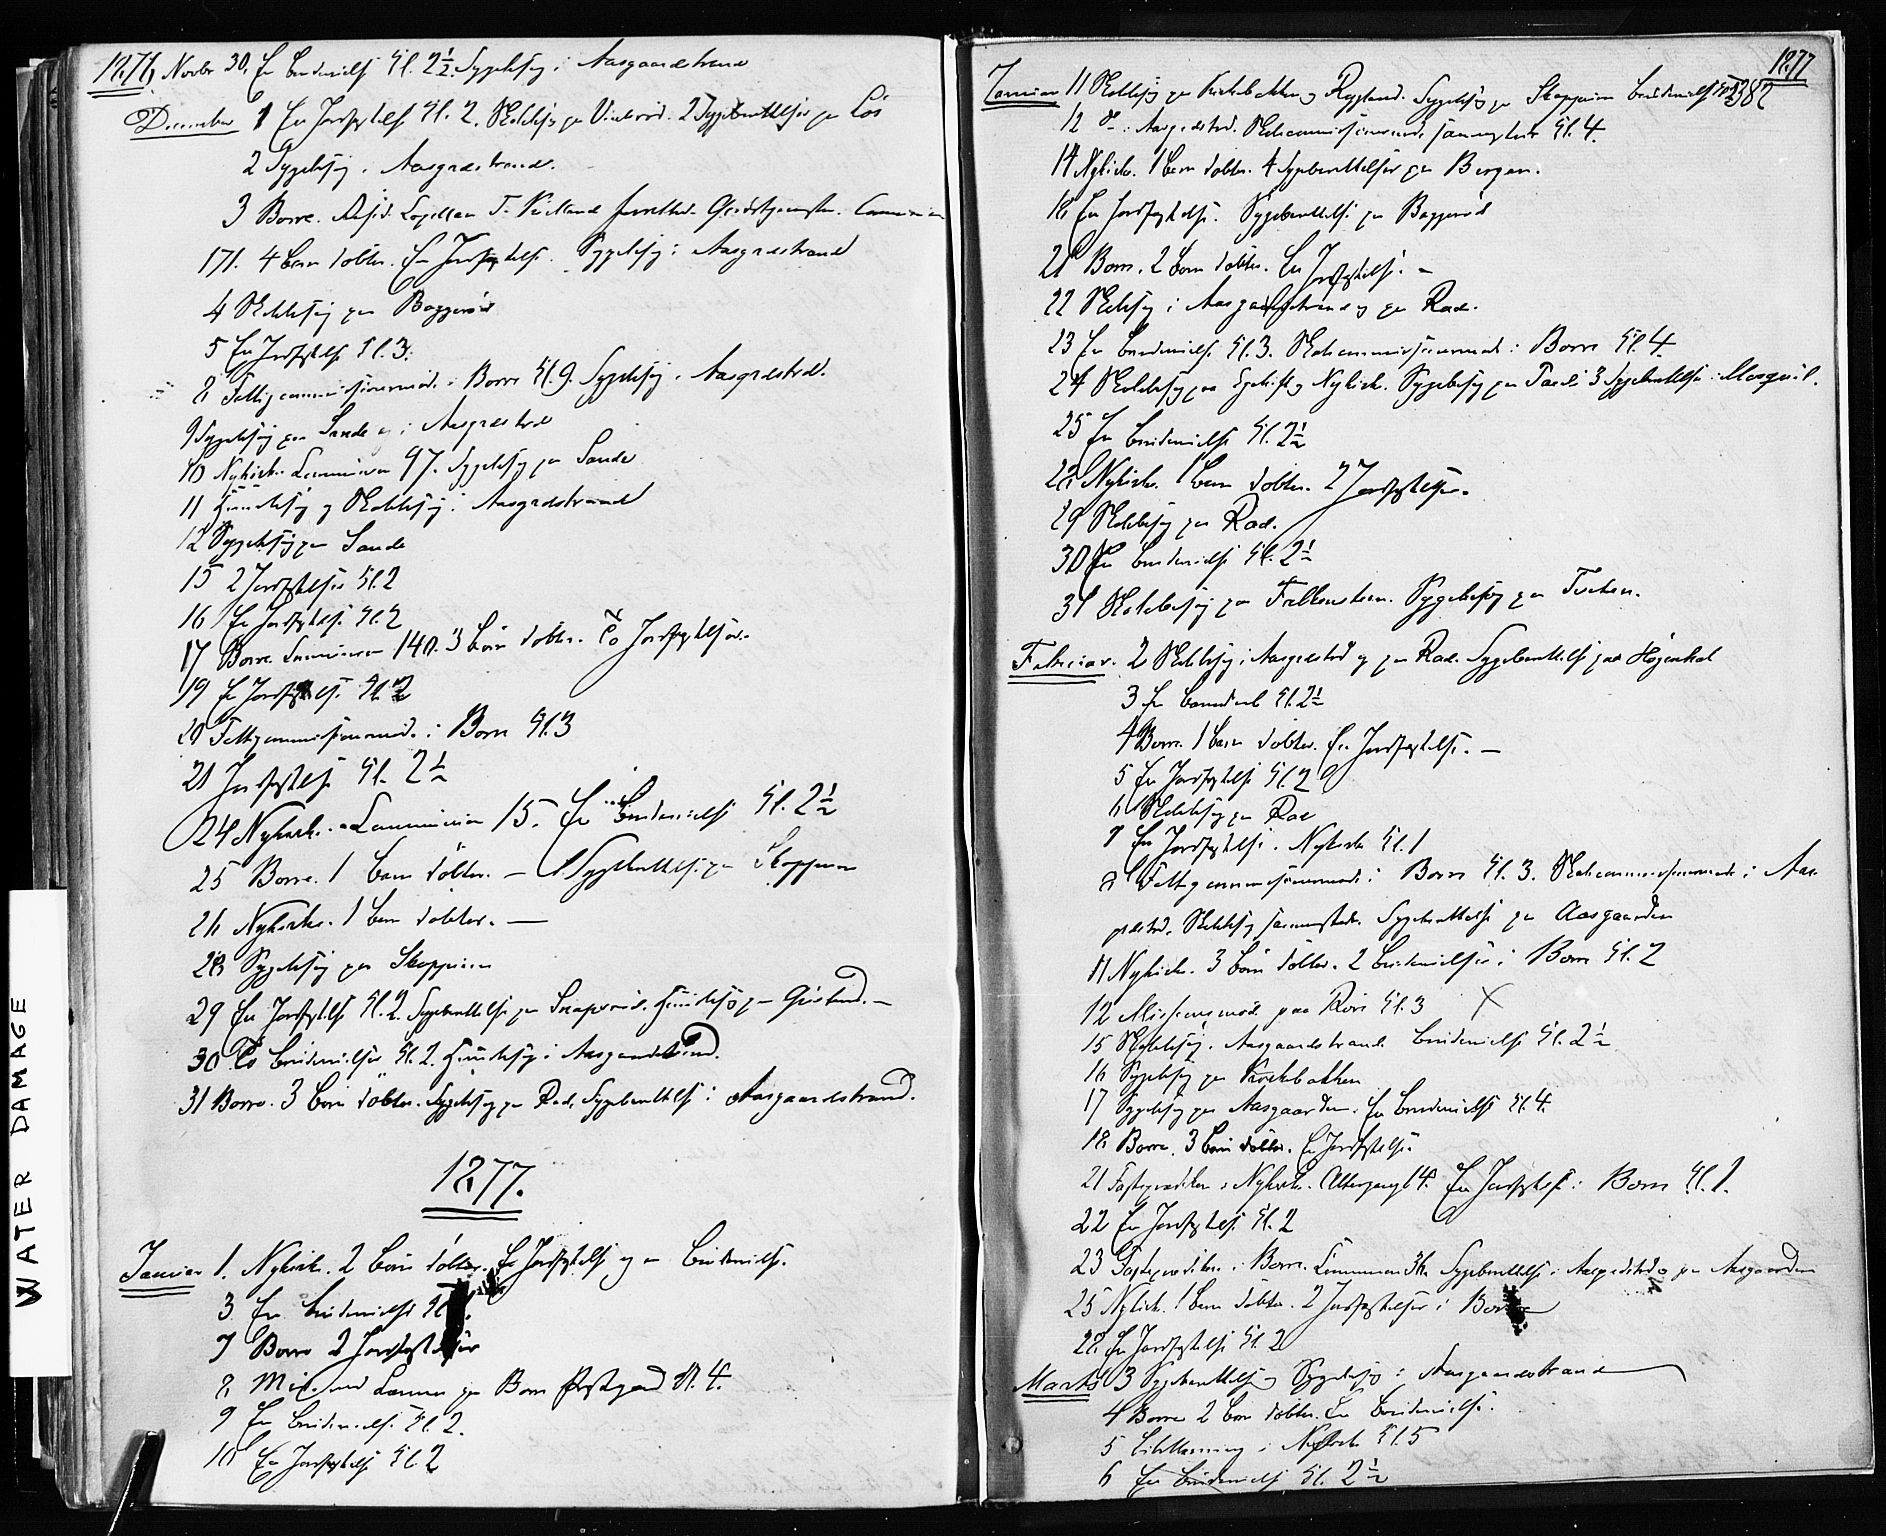 1876, Novbr 30. En Brudevielse Kl. 2½. Sygebesøg i Aasgaardstrand
December 1 En Jordfæstelse Kl. 2. Skolebesøg paa Vinterrød. 2 Sygeberettelser paa Løs
2 Sygebesøg i Aasgrdstrand.
3 Borre. Resid. Capellan T. Kielland forrettede Gudstjenesten. Communion
171. 4 Børn døbte. En Jordfæstelse. Sygebesøg i Aasgrdstrand
4 Skolebesøg paa Baggerød
5 En Jordfæstelse Kl. 3.
8 Fattigcommissionsmøde i Borre Kl. 9. Sygebesøg i Aasgrdstrd.
9 Sygebesøg paa Sande og i Aasgrdstrd
10 Nykirke. Communion 97. Sygebesøg paa Sande
11 Huusbesøg og Skolebesøg i Aasgrdstrand
12 Sygebesøg paa Sande
15 2 Jordfæstelser Kl. 2
16 En Jordfæstelse Kl. 2
17 Borre. Communion 140. 3 Børn døbte. To Jordfæstelser.
19 En Jordfæstelse Kl. 2
20 Fattigcommissionsmøde i Borre Kl. 3
21 Jordfæstelse Kl. 2½
24 Nykirke. Communion 15. En Brudevielse Kl. 2½
25 Borre. 1 Barn døbt. — 1 Sygeberettelse paa Skoppum
26 Nykirke. 1 Barn døbt. —
28 Sygebesøg paa Skoppum
29 En Jordfæstelse Kl. 2. Sygeberettelse paa Snaperød. Huusbesøg paa —
30 To Brudevielser Kl. 2. Huusbesøg i Aasgaardstrand.
31 Borre. 3 Børn døbte. Sygebesøg paa Rad. Sygeberettelse i Aasgaardstrand.
1877.
Januar 1. Nykirke. 2 Børn døbte. En Jordfæstelse og en Brudevielse.
3 En Brudevielse Kl.
7 Borre 2 Jordfæstelser
8 paa Borre Præstegaard Kl. 4.
9 En Brudevielse Kl. 2.
10 En Jordfæstelse Kl. 2
1877
382
Januar 11 Skolebesøg paa Kirkebakken og Rygland. Sygebesøg paa Skoppum Brudevielse
12 Do i Aasgrdstrd. Skolecommissionsmøde sammesteds Kl. 4.
14 Nykirke. 1 Barn døbt. 4 Sygeberettelser paa Bergan.
18 En Jordfæstelse. Sygeberettelse paa Baggerød
21 Borre. 2 Børn døbte. En Jordfæstelse. —
22 Skolebesøg i Aasgaardstrand og paa Rad.
23 En Brudevielse Kl. 3. Skolecommissionsmøde i Borre Kl. 4.
24 Skolebesøg paa og Nykirke. Sygebesøg paa 3 Sygeberettelser
25 En Brudevielse Kl. 2½
28 Nykirke. 1 Barn døbt. 2 Jordfæstelser.
29 Skolebesøg paa Rad.
30 En Brudevielse Kl. 2½
31 Skolebesøg paa Falkensten. Sygebesøg paa
Februar. 2 Skolebesøg i Aasgrdstrd og paa Rad. Sygeberettelse paa
3 En Barnedaab Kl. 2½
4 Borre. 1 Barn døbt. En Jordfæstelse. —
5 En Jordfæstelse Kl. 2
6 Skolebesøg paa Rad
7 En Jordfæstelse i Nykirke Kl. 1
8 Fattigcommissionsmøde i Borre Kl. 3. Skolecommissionsmøde i Aas-
grdstrd. Skolebesøg sammesteds. Sygeberettelse paa Aasgaarden
11 Nykirke. 3 Børn døbte. 2 Brudevielser i Borre Kl. 2
12 Missionsmøde paa Kl. 3 X
15 Skolebesøg i Aasgaardstrand. Brudevielse Kl. 2½
16 Sygebesøg paa Kirkebakken
17 Sygebesøg paa Aasgaarden. En Brudevielse Kl. 4.
18 Borre. 3 Børn døbte. En Jordfæstelse.
21 Fasteprædiken i Nykirke. Altergang 14. En Jordfæstelse i Borre Kl. 1.
22 En Jordfæstelse Kl. 2
23 Fasteprædiken i Borre. Communion 36. Sygeberettelse i Aasgrdstrd og paa Aasgaarden
25 Nykirke. 1 Barn døbt. 2 Jordfæstelser i Borre
28 En Jordfæstelse Kl. 2
Marts 3 Sygeberettelse og Sygebesøg i Aasgaardstrand
4 Borre 2 Børn døbte. En Brudevielse.
5 Bibellæsning i Nykirke Kl. 5
6 En Brudevielse Kl. 2½
WATER DAMAGE